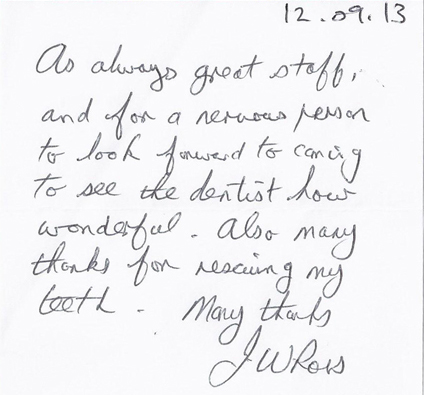 12.09.13
As always great staff,
and for a nervous person
to look forward to coming
to see the dentist how
wonderful. Also many
thanks for rescuing my
teeth. Many thanks
J W Ross